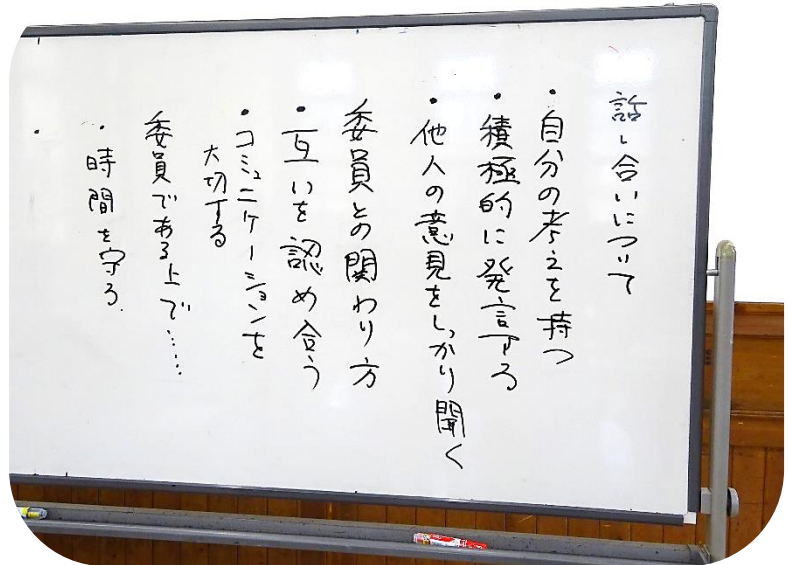 話し合いについて
・自分の考えを持つ
・積極的に発言する
・他人の意見をしっかり聞く
委員との関わり方
・互いを認め合う
・コミュニケーションを
大切する
委員である上で……
・時間を守る.
・